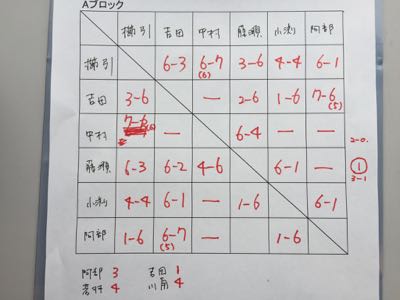 Aブロック
櫛引 吉田 中村 藤瀬 小渕 阿部
櫛引 6-3 6-7(6) 3-6 4-4 6-1
吉田 3-6 — 2-6 1-6 7-6(5)
中村 7-6(6) — 6-4 — —
2-0.
藤瀬 6-3 6-2 4-6 6-1 — ①
3-1
小渕 4-4 6-1 — 1-6 6-1
阿部 1-6 6-7(5) — — 1-6
阿部 3 吉田 1
4 4